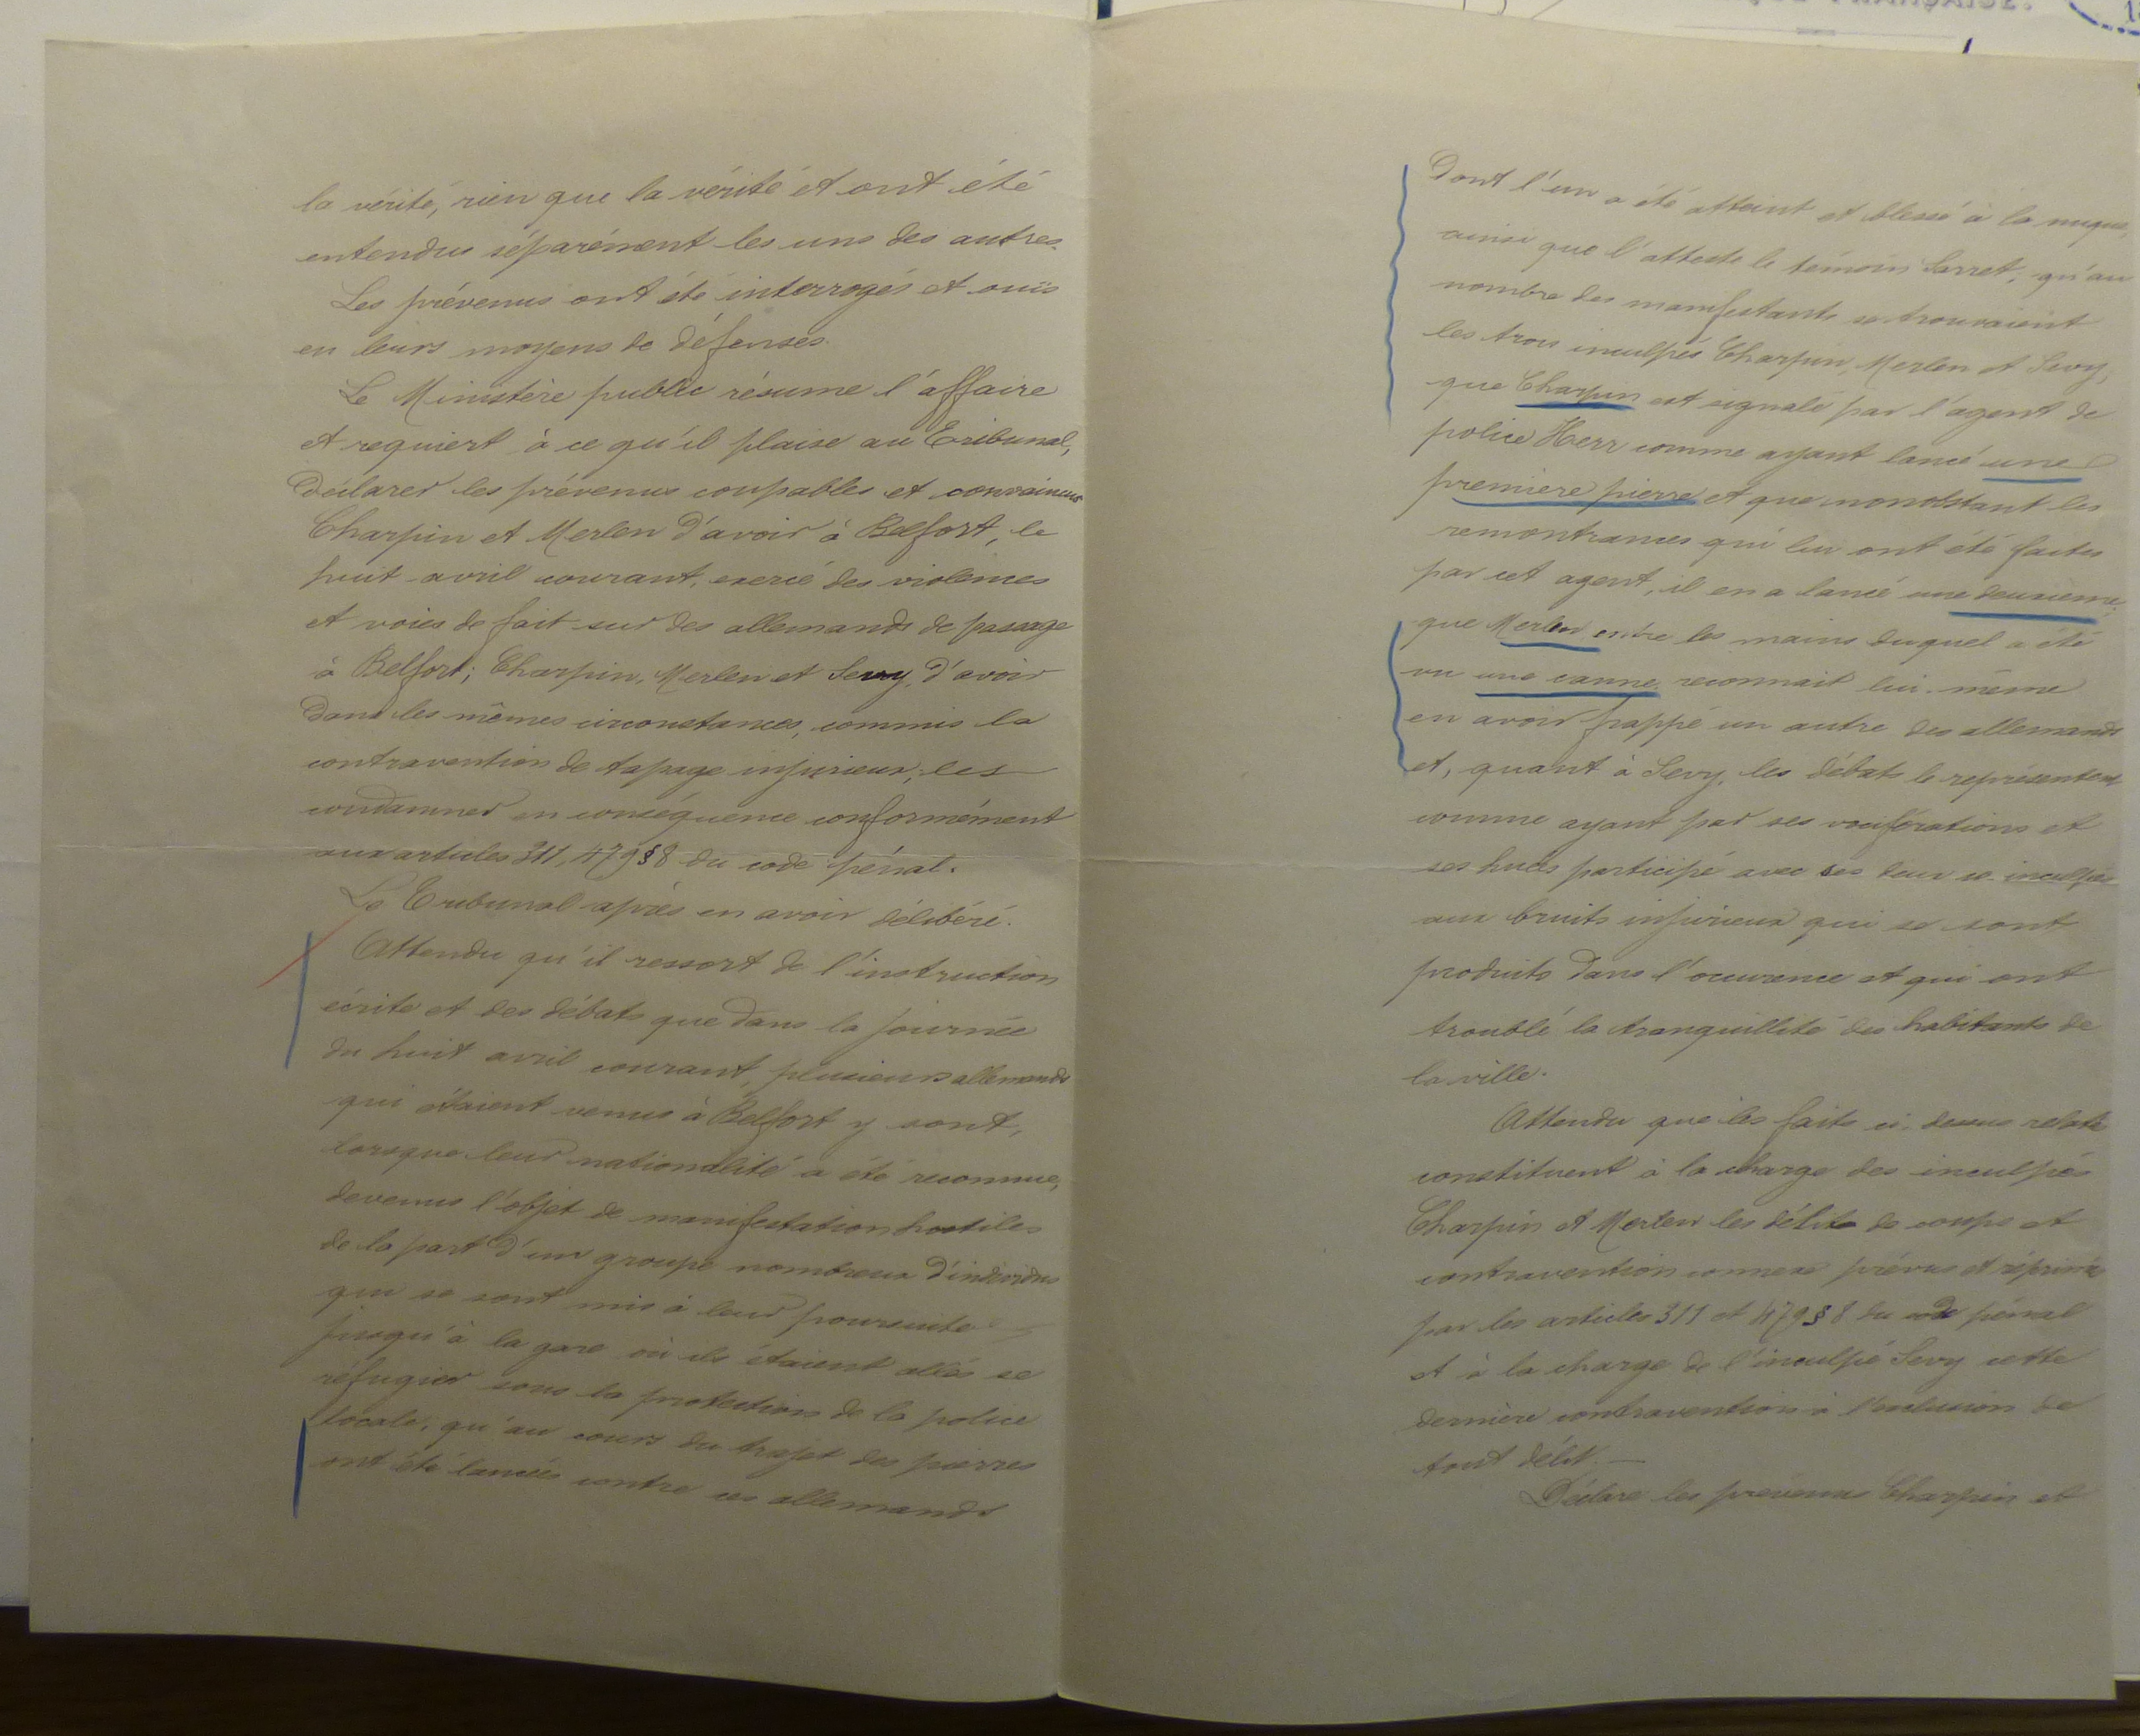 la vérité, rien que la vérité et ont été
entendus séparément les uns des autres.
Les prévenus ont été interrogés et ouïs
en leurs moyens de défenses.
Le Ministère public résume l'affaire
et requiert à ce qu'il plaise au Tribunal,
déclarer les prévenus coupables et convaincus
Charpin et Merlen d'avoir à Belfort, le
huit avril courant, exercé des violences
et voies de fait sur des allemands de passage
à Belfort; Charpin, Merlen et Sevy d'avoir
dans les mêmes circonstances, commis la
contravention de tapage injurieux, les
condamner en conséquence conformément
aux articles 311, 479 § 8 du code pénal.
Le Tribunal après en avoir délibéré.
Attendu qu'il ressort de l'instruction
écrite et des débats que dans la journée
du huit avril courant, plusieurs allemands
qui étaient venus à Belfort y sont,
lorsque leur nationalité a été reconnue,
devenus l'objet de manifestation hostiles
de la part d'un groupe nombreux d'individus
qui se sont mis à leur poursuite
jusqu'à la gare où ils étaient allés se
réfugier sous la protection de la police
locale, qu'au cours du trajet des pierres
ont été lancées contre ces allemands
dont l'un a été atteint et blessé à la nuque,
ainsi que l'atteste le témoin Sarret, qu'au
nombre des manifestants se trouvaient
les trois inculpés Charpin, Merlen et Sevy,
que Charpin est signalé par l'agent de
police Herr comme ayant lancé une
première pierre et que nonobstant les
remontrances qui lui ont été faites
par cet agent, il en a lancé une deuxième,
que Merlen entre les mains duquel a été
vu une canne, reconnait lui-même
en avoir frappé un autre des allemands
et, quant à Sevy, les débats le représentent
comme ayant par ses vociférations et
ses huées participé avec ses deux co-inculpés
aux bruits injurieux qui se sont
produits dans l'occurence et qui ont
troublé la tranquillité des habitants de
la ville.
Attendu que les faits ci-dessus relatés
constituent à la charge des inculpés
Charpin et Merlen les délits de coups et
contravention connexe prévus et réprimés
par les articles 311 et 479 § 8 du code pénal
et à la charge de l'inculpé Sevy cette
dernière contravention à l'exclusion de
tout délit.
Déclare les prévenus Charpin et